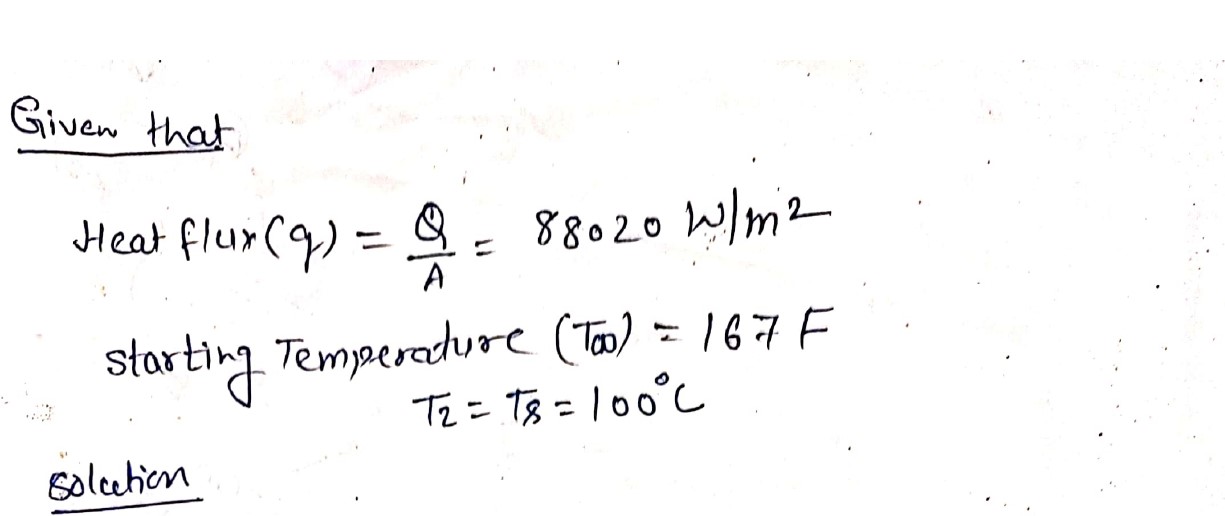 Given that
Heat flux(q) = Q/A = 88020 W/m²
starting Temperature (T∞) = 167 F
T₂ = Ts = 100°C
solution